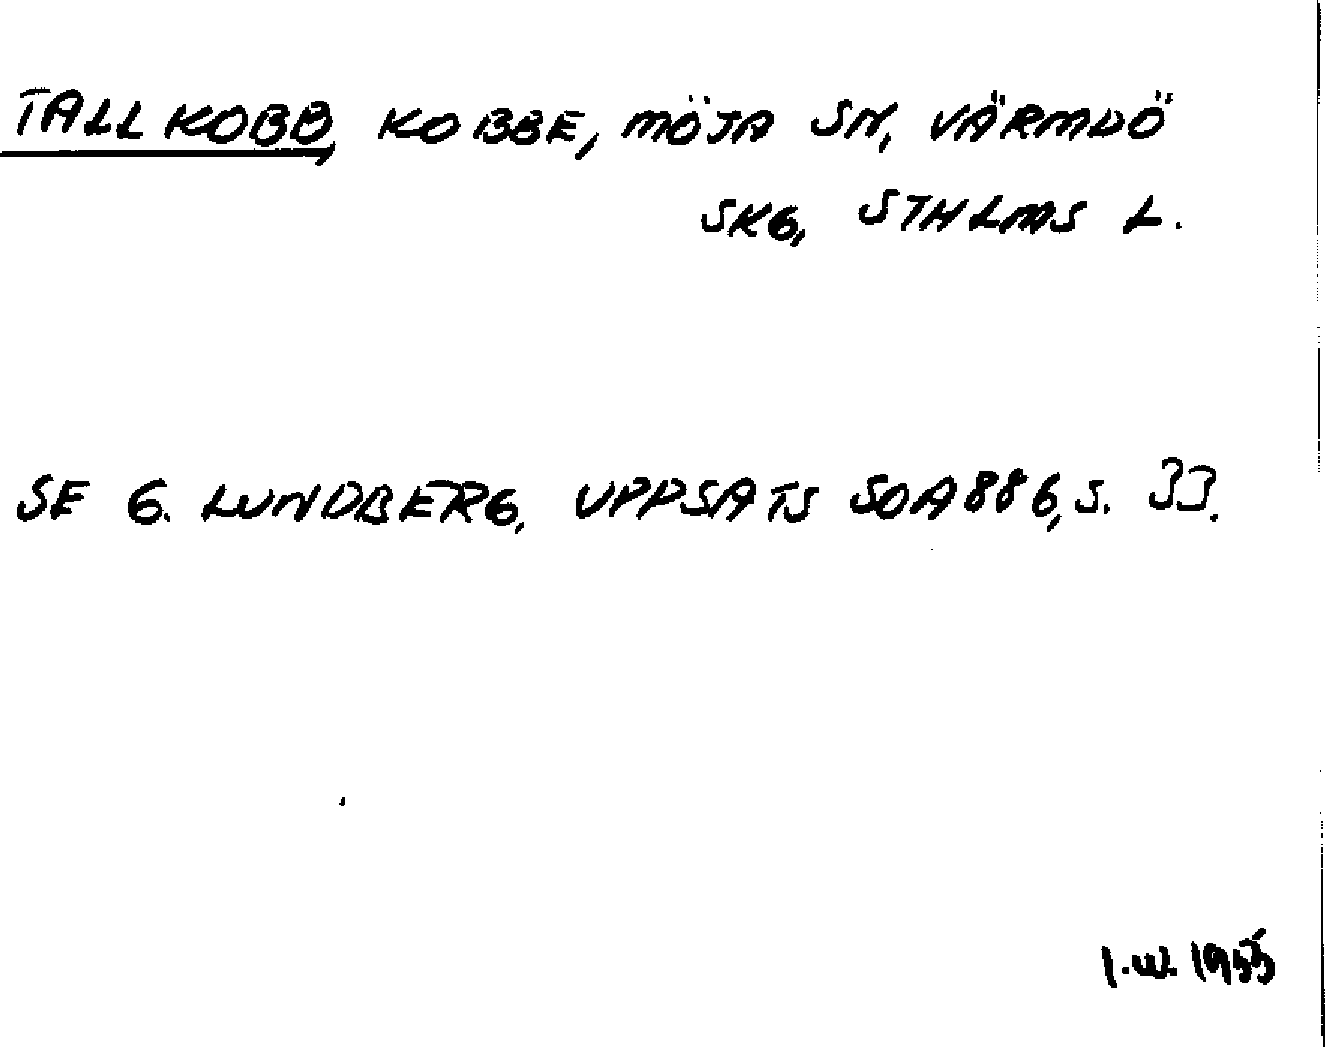 TALLKOBB, KOBBE, MÖJA SN, VÄRMDÖ
SKG, STHLMS L.
SE G. LUNDBERG, UPPSATS SOA 886, S. 33.
I.W. 1955